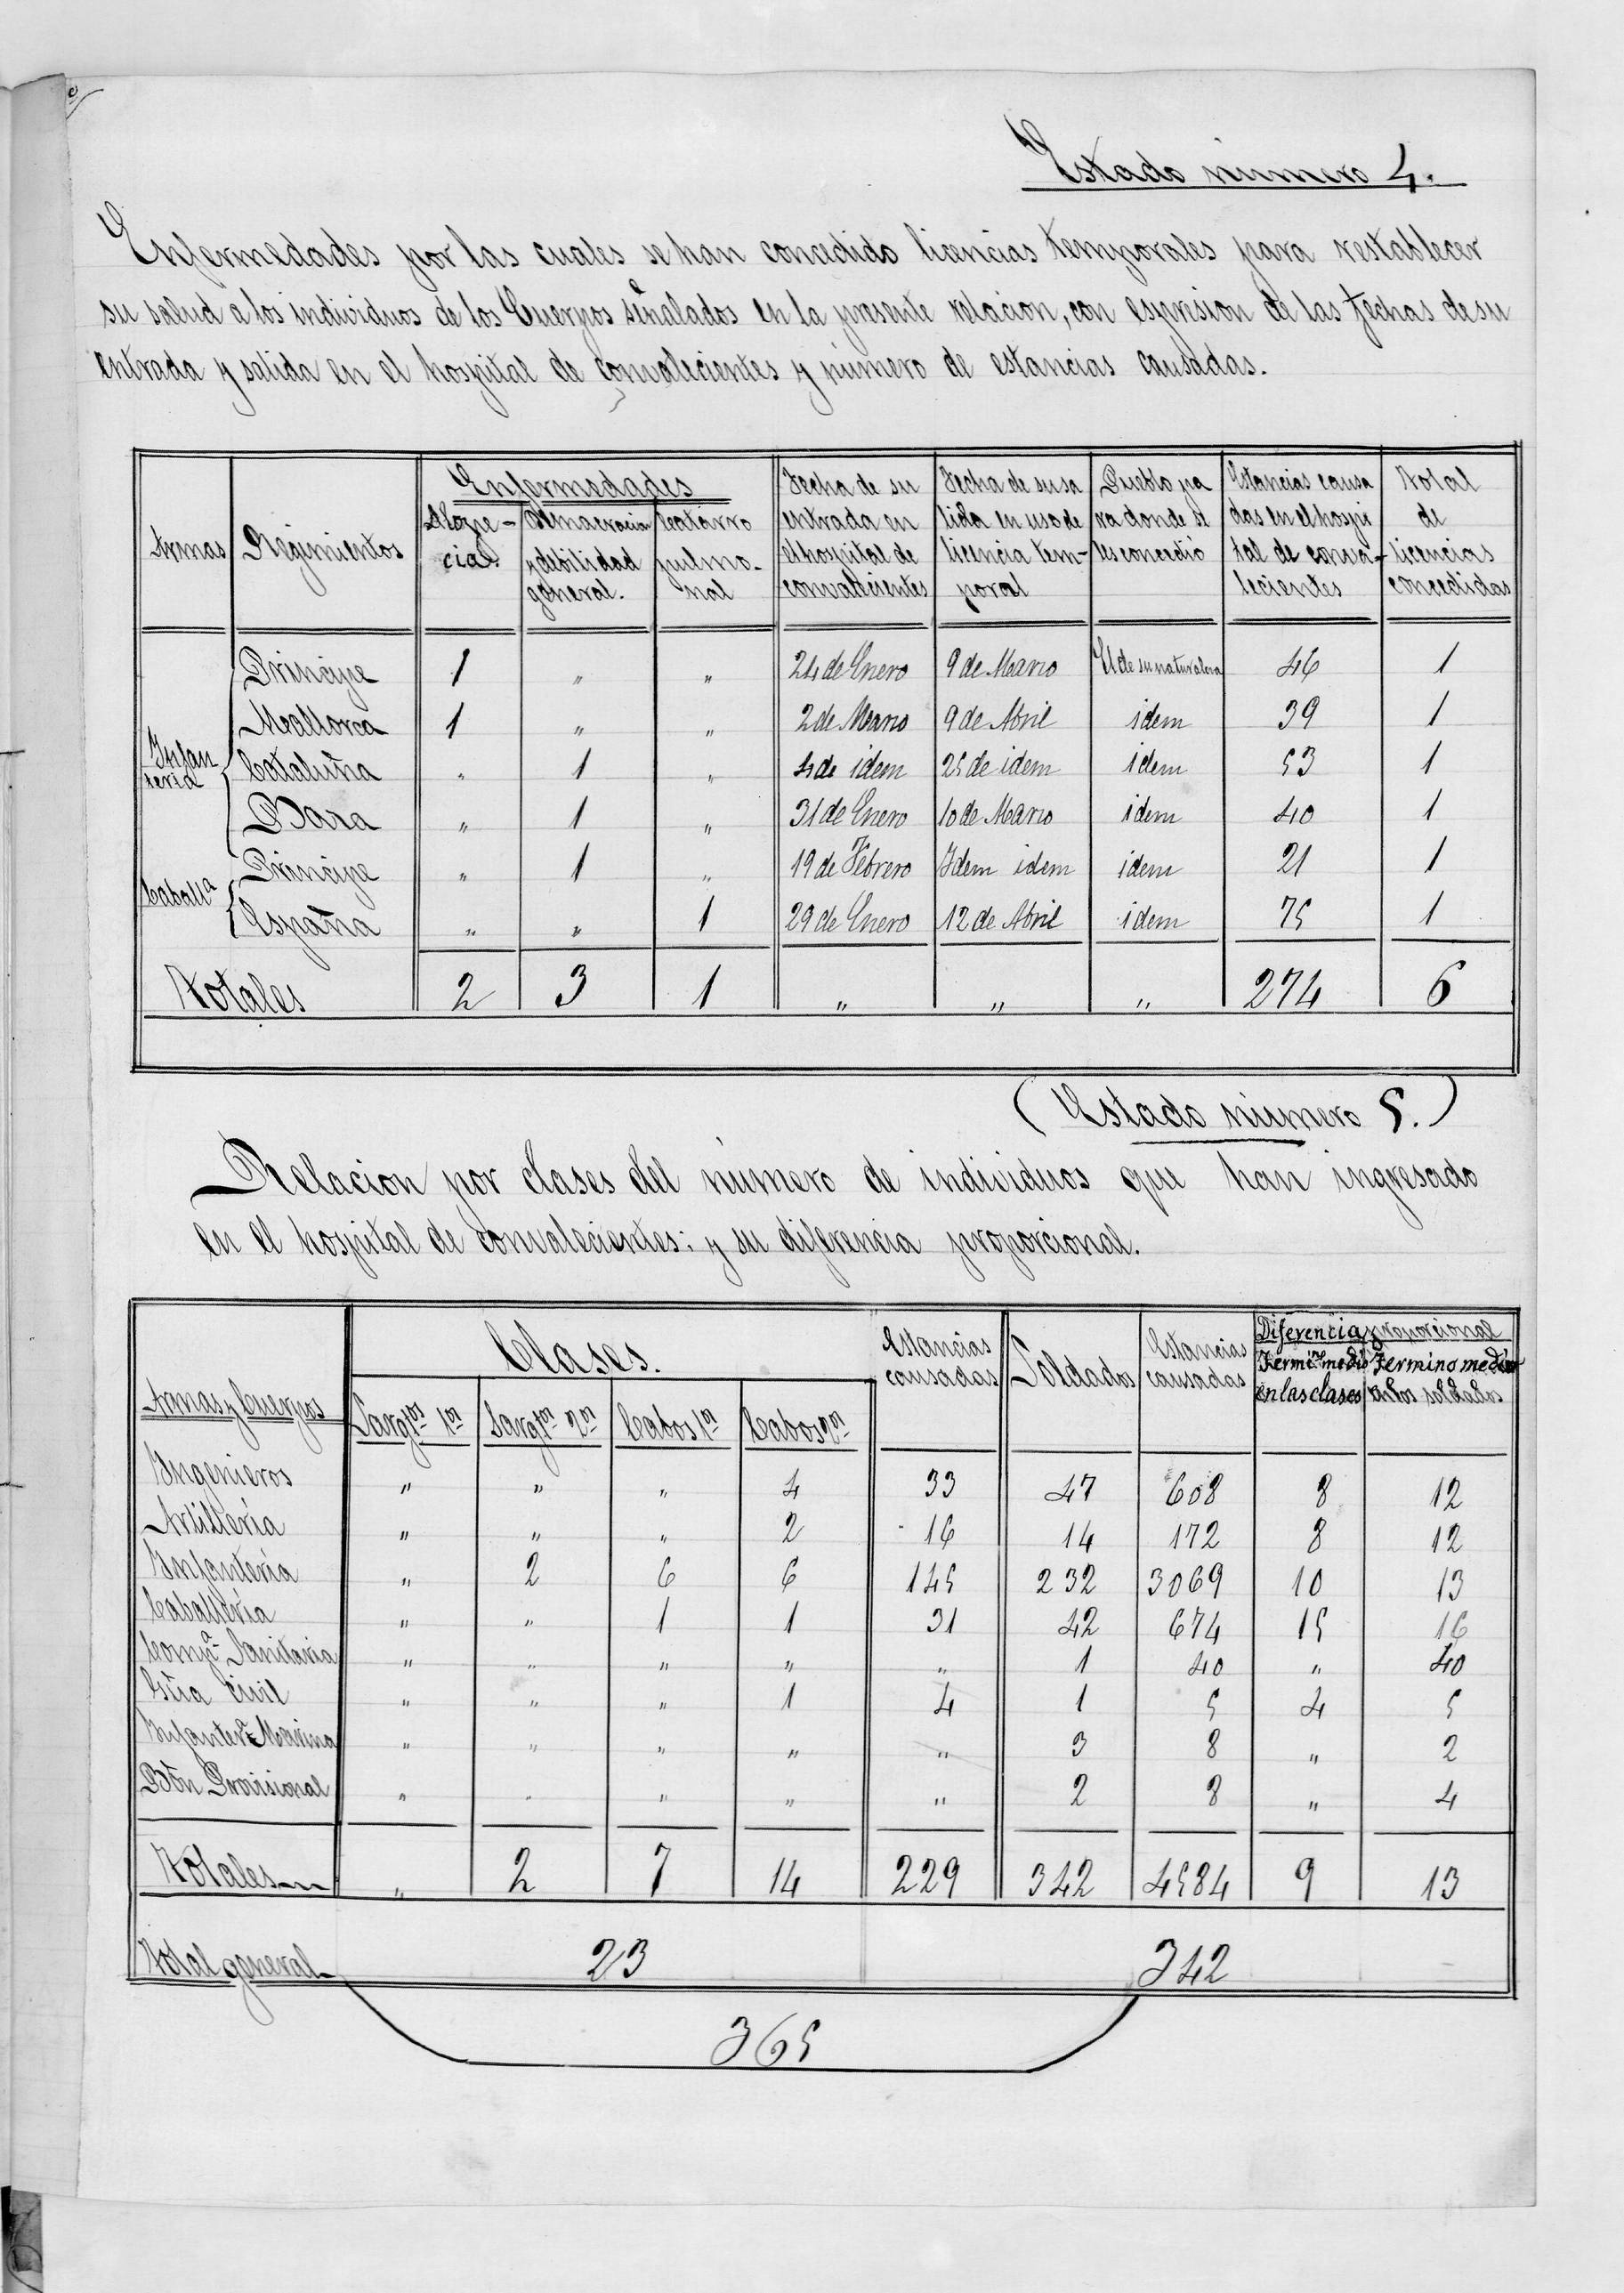 Estado número 4.
Enfermedades por las cuales se han concedido licencias temporales para restablecer
su salud á los individuos de los Cuerpos señalados en la presente relacion, con espresion de las fechas de su
entrada y salida en el hospital de convalecientes y número de estancias causadas.
Armas Regimientos Enfermedades Alope-cia. Demacracion y debilidad general. Catarro pulmo-nal Fecha de su entrada en el hospital de convalecientes Fecha de su sa lida en uso de licencia tem-poral Pueblo pa ra donde se les concedió Estancias causa das en el hospi tal de conva-lecientes Total de licencias concedidas
Infan teria
Principe 1 " " 24 de Enero 9 de Marzo El de su naturaleza 46 1
Mallorca 1 " " 2 de Marzo 9 de Abril idem 39 1
Cataluña " 1 " 4 de idem 25 de idem idem 53 1
Baza " 1 " 31 de Enero 10 de Marzo idem 40 1
Caballª
Principe " 1 " 19 de Febrero Idem idem idem 21 1
España " " 1 29 de Enero 12 de Abril idem 75 1
Totales 2 3 1 " " " 274 6
(Estado número 5.)
Relacion por clases del número de individuos que han ingresado
en el hospital de convalecientes; y su diferencia proporcional.
Armas y Cuerpos Clases. Sargtos 1os Sargtos 2os Cabos 1os Cabos 2os Estancias causadas Soldados Estancias causadas Diferencia proporcional Termino medio en las clases Termino medio en los soldados
Ingenieros " " " 4 33 47 608 8 12
Artilleria " " " 2 16 14 172 8 12
Infanteria " 2 6 6 145 232 3069 10 13
Caballeria " " 1 1 31 42 674 15 16
Compª Sanitaria " " " " " 1 40 " 40
Gªia civil " " " 1 4 1 5 4 5
Infanterª Marina " " " " " 3 8 " 2
Bon Provisional " " " " " 2 8 " 4
Totales " 2 7 14 229 342 4584 9 13
Total general 23 342
365